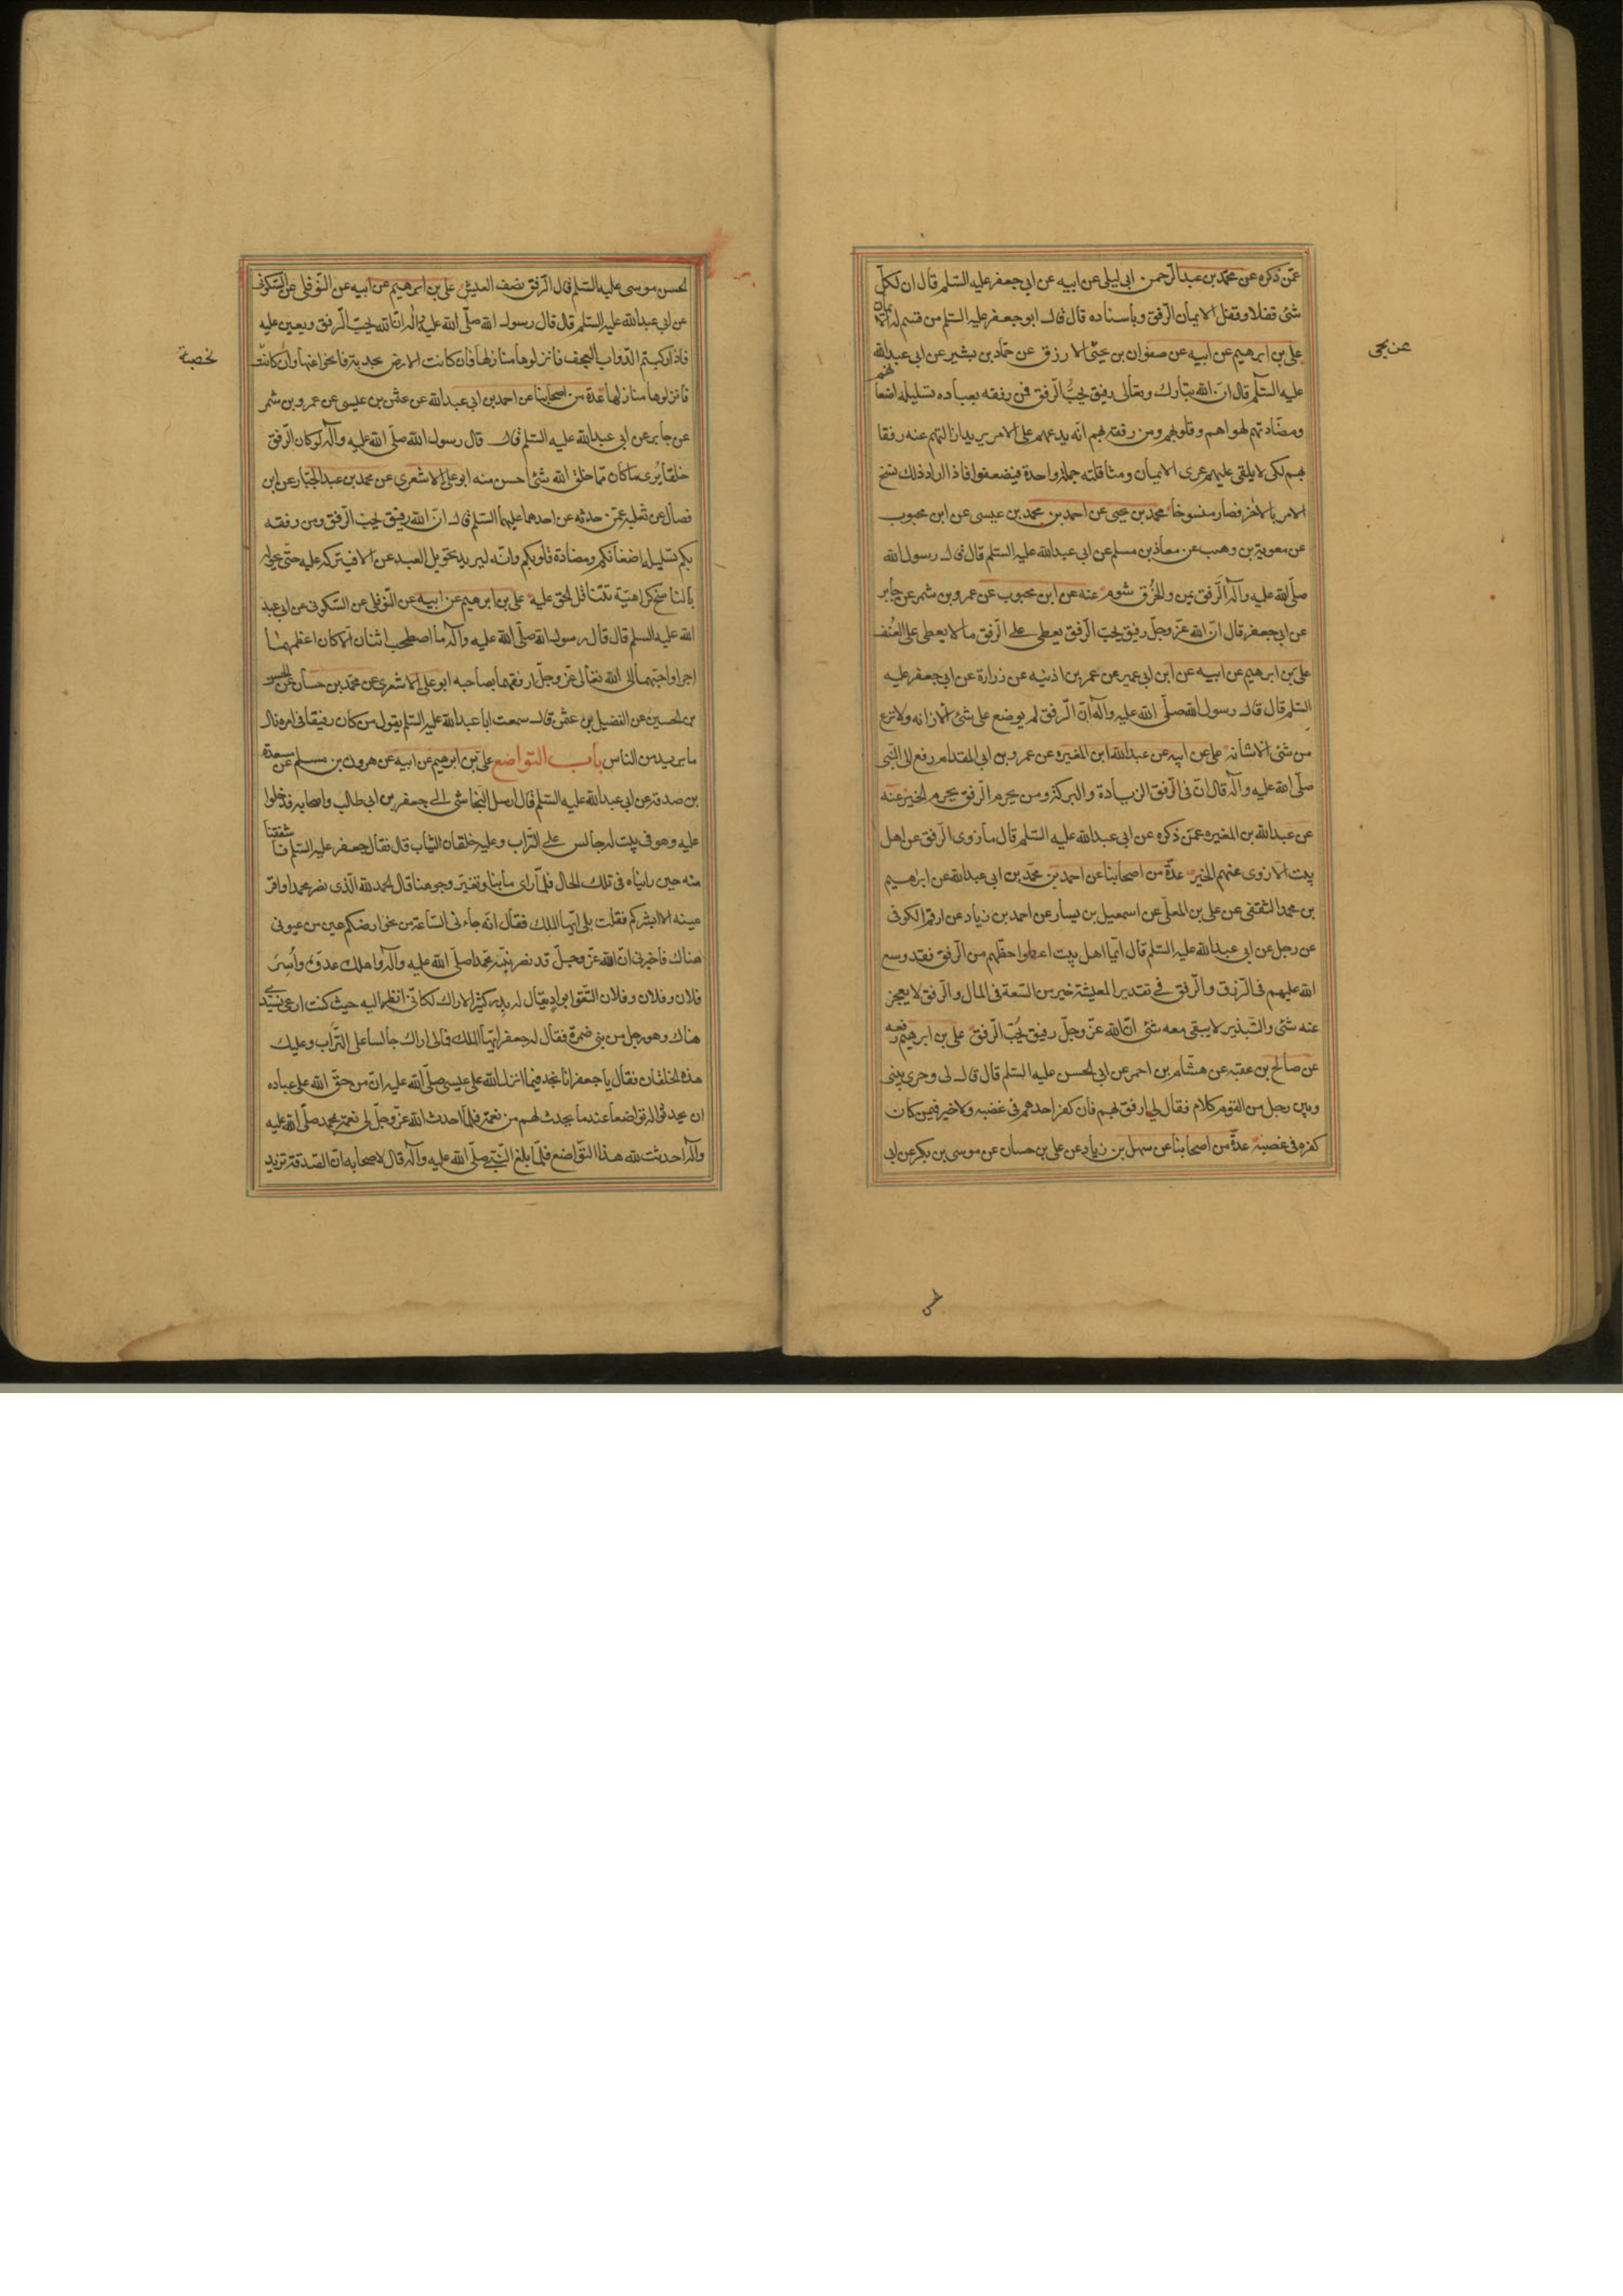 عمّن ذكره عن محمّد بن عبد الرّحمن ابى ليلى عن ابيه عن ابى جعفر عليه السّلم قال ان لكلّ
شئ قفلا وقفل الايمان الرّفق وباسناده قال قال ابو جعفر عليه السلم من قسم له
علىّ بن ابرهيم عن ابيه عن صفوان بن يحيى الازرق عن حمّاد بن بشير عن ابى عبد الله
عن يحيى
عليه السّلم قال انّ الله تبارك وتعالى رفيق يحبّ الرّفق فمن رفقه بعباده تسليله اضغا
نهم
ومضّادتهم لهواهم وقلوبهم ومن رفقه بهم انّه يدعهم على الامر يريد ازالتهم عنه رفقا
بهم لكى لا يلقى عليهم عرى الايمان ومثاقلته جملة واحدة فيضعفوا فاذا اراد ذلك نسخ
الامر بالاخر فصار منسوخا محمّد بن يحيى عن احمد بن محمد بن عيسى عن ابن محبوب
عن معوية بن وهب عن معاذ بن مسلم عن ابى عبد الله عليه السّلم قال قال رسول الله
صلّى الله عليه وآله الرّفق يمن والخرق شوم عنه عن ابن محبوب عن عمرو بن شمر عن جابر
عن ابى جعفر قال انّ الله عزّ وجلّ رفيق يحبّ الرّفق يعطى على الرّفق ما لا يعطى على العُنف
علىّ بن ابرهيم عن ابيه عن ابن ابى عمير عن عمر بن اذنيه عن زرارة عن ابى جعفر عليه
السّلم قال قال رسول الله صلّى الله عليه وآله انّ الرّفق لم يوضع على شئ الّا زانه ولا نزع
من شئ الّا شانه علىّ عن ابيه عن عبد الله ابن المغيره عن عمرو بن ابى المقدام رفع الى النّبى
صلّى الله عليه وآله قال انّ فى الرّفق الزيادة والبركة ومن يحرم الرّفق يحرم الخير عنه
عن عبد الله بن المغيره عمّن ذكره عن ابى عبد الله عليه السّلم قال ما زوى الرّفق عن اهل
بيت الا زوى عنهم الخير عدّة من اصحابنا عن احمد بن محمّد بن ابى عبد الله عن ابرهيم
بن محمد الثقفى عن على بن المعلّى عن اسمعيل بن يسار عن احمد بن زياد عن ارقم الكوفى
عن رجل عن ابى عبد الله عليه السّلم قال ايّما اهل بيت اعطوا حظّهم من الرّفق فقد وسع
الله عليهم فى الرّزق والرّفق فى تقدير المعيشة خير من السّعة فى المال والرّفق لا يعجز
عنه شئ والتّبذير لا يبقى معه شئ انّ الله عزّ وجلّ رفيق يحبّ الرّفق علىّ بن ابرهيم رفعه
عن صالح بن عقبه عن هشام بن احمر عن ابى الحسن عليه السّلم قال قال لى وجرى بينى
وبين رجل من القوم كلام فقال لى ارفق بهم فان كفر احدهم فى غضبه ولا خير فيمن كان
كفره فى غضبه عدّة من اصحابنا عن سهل بن زياد عن على بن حسان عن موسى بن بكر عن ابى
الحسن موسى عليه السّلم قال الرّفق نصف العيش علىّ بن ابرهيم عن ابيه عن النّوفلى عن السّكونى
عن ابى عبد الله عليه السّلم قال قال رسول الله صلّى الله عليه وآله انّ الله يحبّ الرّفق ويعين عليه
فاذا ركبتم الدّواب العجف فانزلوها منازلها فان كانت الارض مجدبة فانجوا عنها وان كانت
مخصبة
فانزلوها منازلها عدّة من اصحابنا عن احمد بن ابى عبد الله عن عثمن بن عيسى عن عمرو بن شمر
عن جابر عن ابى عبد الله عليه السّلم قال قال رسول الله صلّى الله عليه وآله لو كان الرّفق
خلقا يُرى ما كان ممّا خلق الله شئ احسن منه ابو علىّ الاشعرى عن محمد بن عبد الجبّار عن ابن
فضال عن ثعلبه عمّن حدثه عن احدهما عليهما السّلم قال انّ الله رفيق يحبّ الرّفق ومن رفقه
بكم تسليل اضغانكم ومضادة قلوبكم وانّه ليريد تحويل العبد عن الامر فيتركه عليه حتّى يحوله
بالناسخ كراهيّة تثاقل الحق عليه علىّ بن ابرهيم عن ابيه عن النّوفلى عن السّكونى عن ابى عبد
الله عليه السلم قال قال رسول الله صلّى الله عليه وآله ما اصطحب اثنان الّا كان اعظمهما
اجرا واحبّهما الى الله تعالى عزّ وجلّ ارفقهما بصاحبه ابو على الاشعرى عن محمّد بن حسان عن الحسن
بن الحسين عن الفضيل بن عثمن قال سمعت ابا عبد الله عليه السّلم يقول من كان رفيقا فى امره نال
ما يريد من الناس باب التواضع علىّ بن ابرهيم عن ابيه عن هرون بن مسلم عن مسعدة
بن صدقة عن ابى عبد الله عليه السّلم قال ارسل النّجاشى الى جعفر بن ابى طالب واصحابه فدخلوا
عليه وهو فى بيت له جالس على التّراب وعليه خلقان الثّياب قال فقال جعفر عليه السّلم فاشفقنا
منه حين رايناه فى تلك الحال فلمّا راى ما بنا وتغيّر وجوهنا قال الحمد لله الّذى نصر محمدا واقرّ
عينه الا ابشركم فقلت بلى ايّها الملك فقال انّه جاءنى السّاعة من نحو ارضكم عين من عيونى
هناك فاخبرنى انّ الله عزّ وجلّ قد نصر نبيّه محمّدا صلّى الله عليه وآله واهلك عدوّه وأُسِرَ
فلان وفلان وفلان التقوا بوادٍ يقال له بدر كثير الاراك لكانّى انظر اليه حيث كنت ارعى لسيّدى
هناك وهو رجل من بنى ضمرة فقال له جعفر ايّها الملك فمالى اراك جالسا على التّراب وعليك
هذه الخلقان فقال يا جعفر انّا نجد فيما انزل الله على عيسى صلّى الله عليه انّ من حقّ الله على عباده
ان يحدثوا له تواضعا عندما يحدث لهم من نعمة فلمّا احدث الله عزّ وجلّ لى نعمة بمحمد صلّى الله عليه
وآله احدثت لله هذا التّواضع فلمّا بلغ النّبىّ صلّى الله عليه وآله قال لاصحابه انّ الصّدقة تزيد